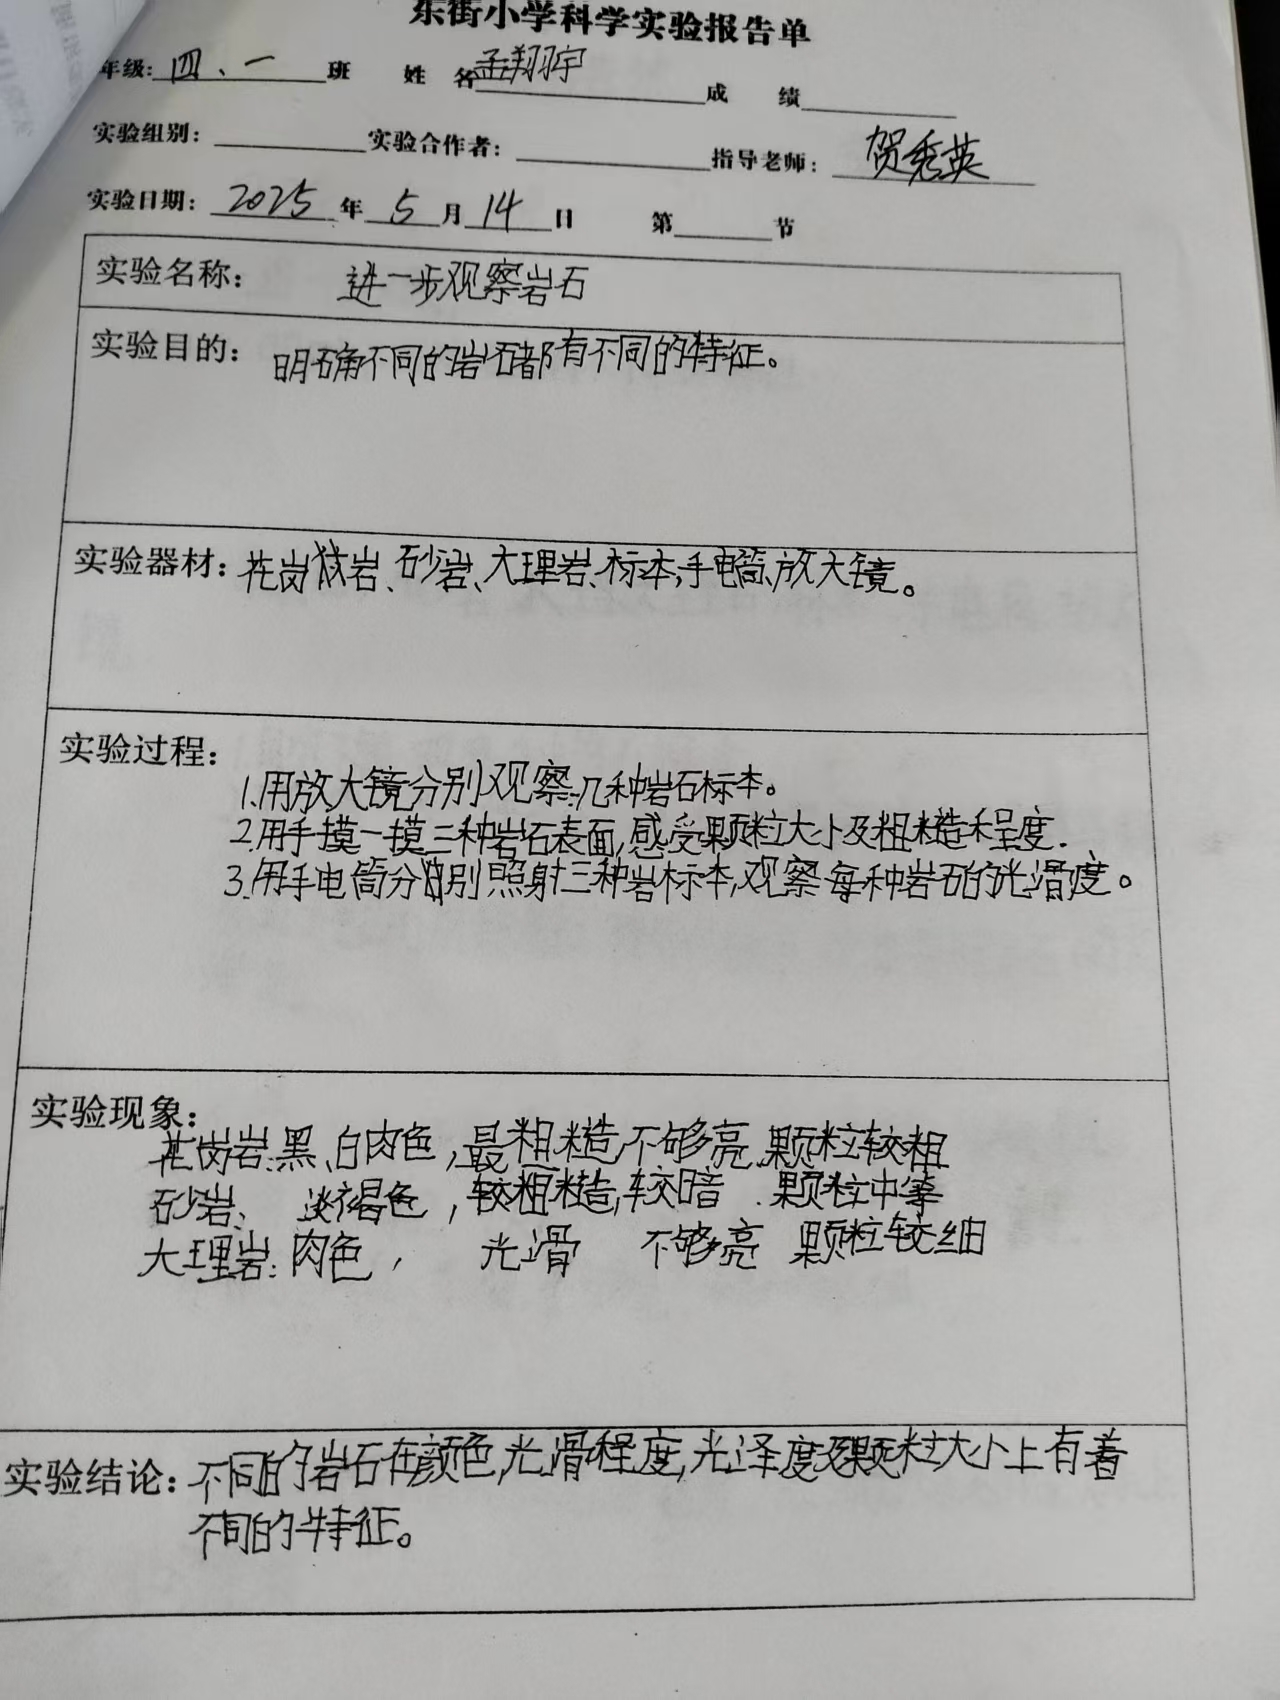 东街小学科学实验报告单
年级: 四、一 班 姓 名 孟翔宇 成 绩
实验组别: 实验合作者: 指导老师: 贺秀英
实验日期: 2025 年 5 月 14 日 第 节
实验名称: 进一步观察岩石
实验目的: 明确不同的岩石都有不同的特征。
实验器材: 花岗岩、砂岩、大理岩、标本,手电筒、放大镜。
实验过程:
1.用放大镜分别观察几种岩石标本。
2.用手摸一摸三种岩石表面,感受颗粒大小及粗糙程度.
3.用手电筒分别照射三种岩标本,观察每种岩石的光滑度。
实验现象:
花岗岩:黑、白肉色,最粗糙,不够亮,颗粒较粗
砂岩、 淡褐色,较粗糙,较暗.颗粒中等
大理岩:肉色, 光滑 不够亮 颗粒较细
实验结论: 不同的岩石在颜色,光滑程度,光泽度及颗粒大小上有着
不同的特征。